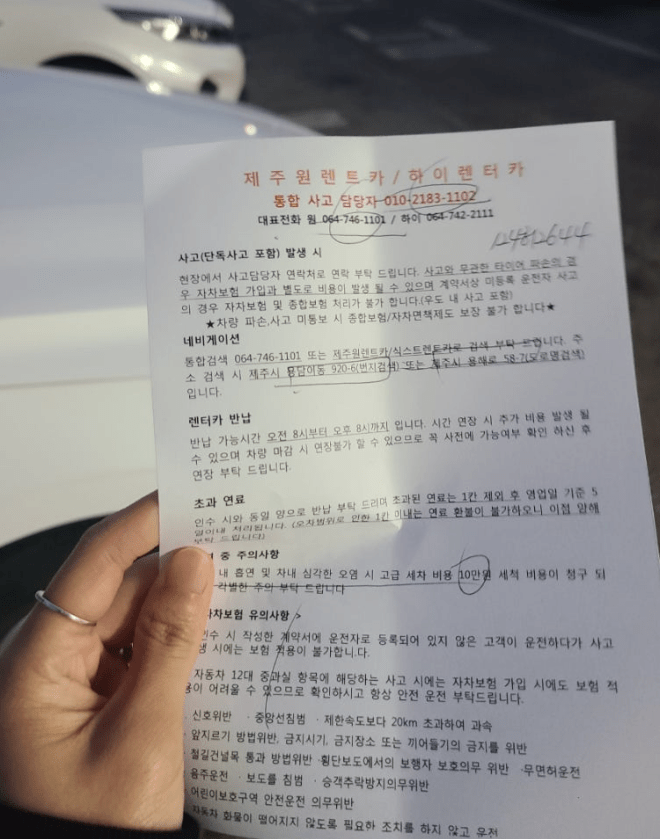 제주원렌트카/하이렌터카
통합 사고 담당자 010-2183-1102
대표전화 원 064-746-1101 / 하이 064-742-2111
사고(단독사고 포함) 발생 시
현장에서 사고담당자 연락처로 연락 부탁 드립니다. 사고와 무관한 타이어 파손의 경
우 자차보험 가입과 별도로 비용이 발생 될 수 있으며 계약서상 미등록 운전자 사고
의 경우 자차보험 및 종합보험 처리가 불가 합니다.(우도 내 사고 포함)
★차량 파손,사고 미통보 시 종합보험/자차면책제도 보장 불가 합니다★
네비게이션
통합검색 064-746-1101 또는 제주원렌트카/식스트렌트카로 검색 부탁 드립니다. 주
소 검색 시 제주시 용담이동 920-6(번지검색) 또는 제주시 용해로 58-7(도로명검색)
입니다.
렌터카 반납
반납 가능시간 오전 8시부터 오후 8시까지 입니다. 시간 연장 시 추가 비용 발생 될
수 있으며 차량 마감 시 연장불가 할 수 있으므로 꼭 사전에 가능여부 확인 하신 후
연장 부탁 드립니다.
초과 연료
인수 시와 동일 양으로 반납 부탁 드리며 초과된 연료는 1칸 제외 후 영업일 기준 5
일이내 처리됩니다. (오차범위로 인한 1칸 이내는 연료 환불이 불가하오니 이점 양해
부탁 드립니다)
중 주의사항
내 흡연 및 차내 심각한 오염 시 고급 세차 비용 10만원 세척 비용이 청구 되
각별한 주의 부탁 드립니다
자차보험 유의사항 >
인수 시 작성한 계약서에 운전자로 등록되어 있지 않은 고객이 운전하다가 사고
생 시에는 보험 적용이 불가합니다.
자동차 12대 중과실 항목에 해당하는 사고 시에는 자차보험 가입 시에도 보험 적
용이 어려울 수 있으므로 확인하시고 항상 안전 운전 부탁드립니다.
신호위반 · 중앙선침범 · 제한속도보다 20km 초과하여 과속
앞지르기 방법위반, 금지시기, 금지장소 또는 끼어들기의 금지를 위반
철길건널목 통과 방법위반 ·횡단보도에서의 보행자 보호의무 위반 ·무면허운전
음주운전 · 보도를 침범 · 승객추락방지의무위반
어린이보호구역 안전운전 의무위반
자동차 화물이 떨어지지 않도록 필요한 조치를 하지 않고 운전